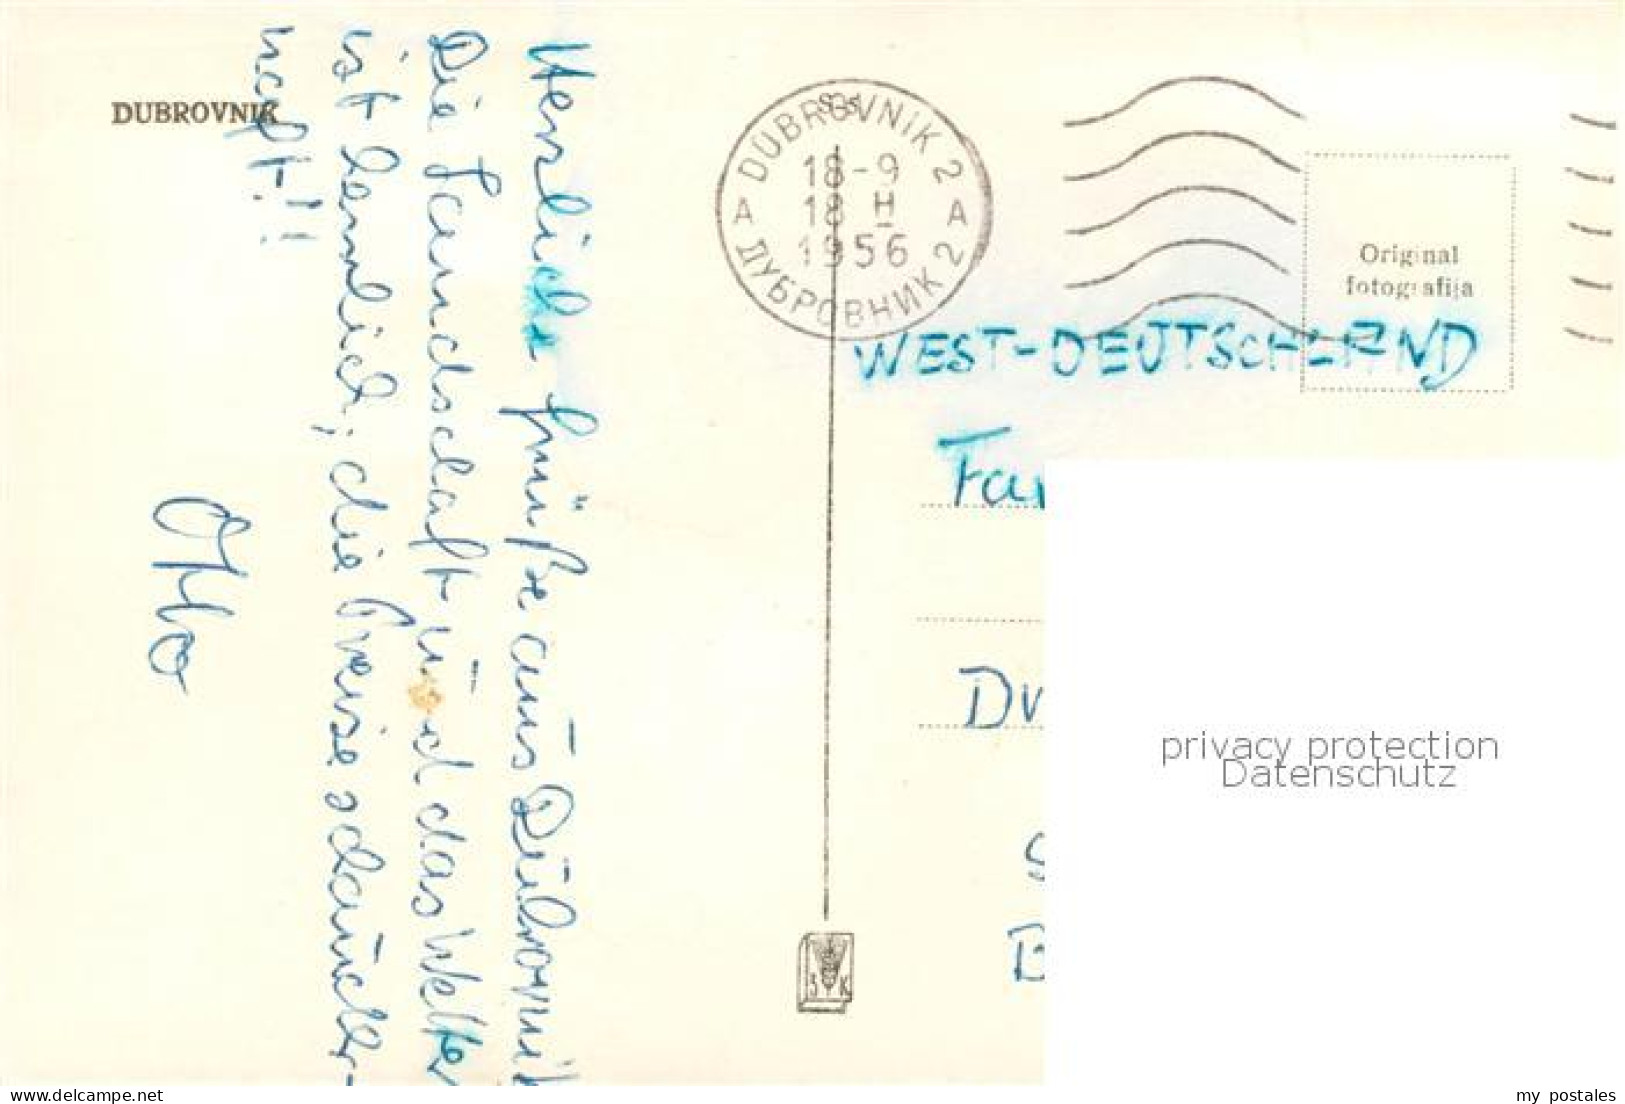 DUBROVNIK
Herzliche Grüße aus Dubrovnik
Die Landschaft und das Wetter
ist herrlich; die Preise schauder-
haft!!
Otto
DUBROVNIK 2
A A
18-9
18 II
1956
ДУБРОВНИК 2
Original
fotografija
WEST-DEUTSCHLAND
Fa
D
B
З K
privacy protection
Datenschutz
www.delcampe.net
my_postales